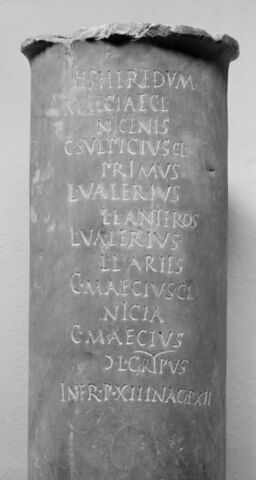 H·S·HEREDVM
MAECIAE C L
NICENIS
C SVLPICIUS C L
PRIMUS
L VALERIUS
L L ANTEROS
L VALERIUS
L L ARIES
C·MAECIUS C L
NICIA
C·MAECIUS
Ɔ L·GRYPUS
IN FR·P·XIII IN AG P XII